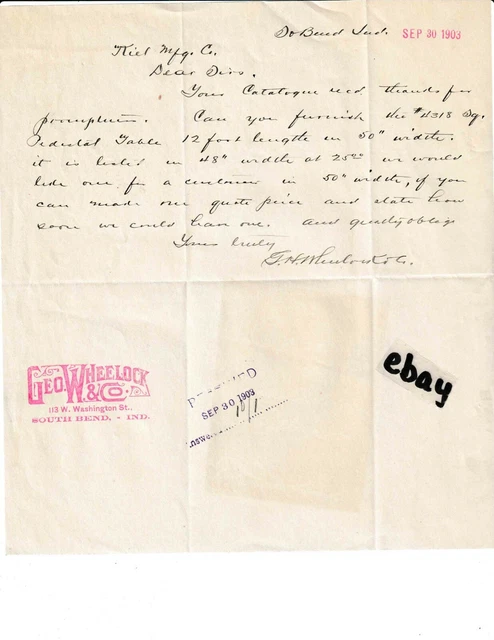 So Bend Ind. SEP 30 1903
Kiel Mfg. Co.
Dear Sirs.
Your Catalogue recd thanks for
promptness. Can you furnish the #4318 Sq.
Pedestal Table 12 foot length in 50" width.
it is listed in 48" width at 25 we would
like one for a customer in 50" width, if you
can made one quote price and state how
soon we could have one. and greatly oblige
Yours truly
G. H. Wheelock & Co.
GEO. WHEELOCK
& CO.
113 W. Washington St.,
SOUTH BEND, - IND.
RECEIVED
SEP 30 1903
Answe
ebay